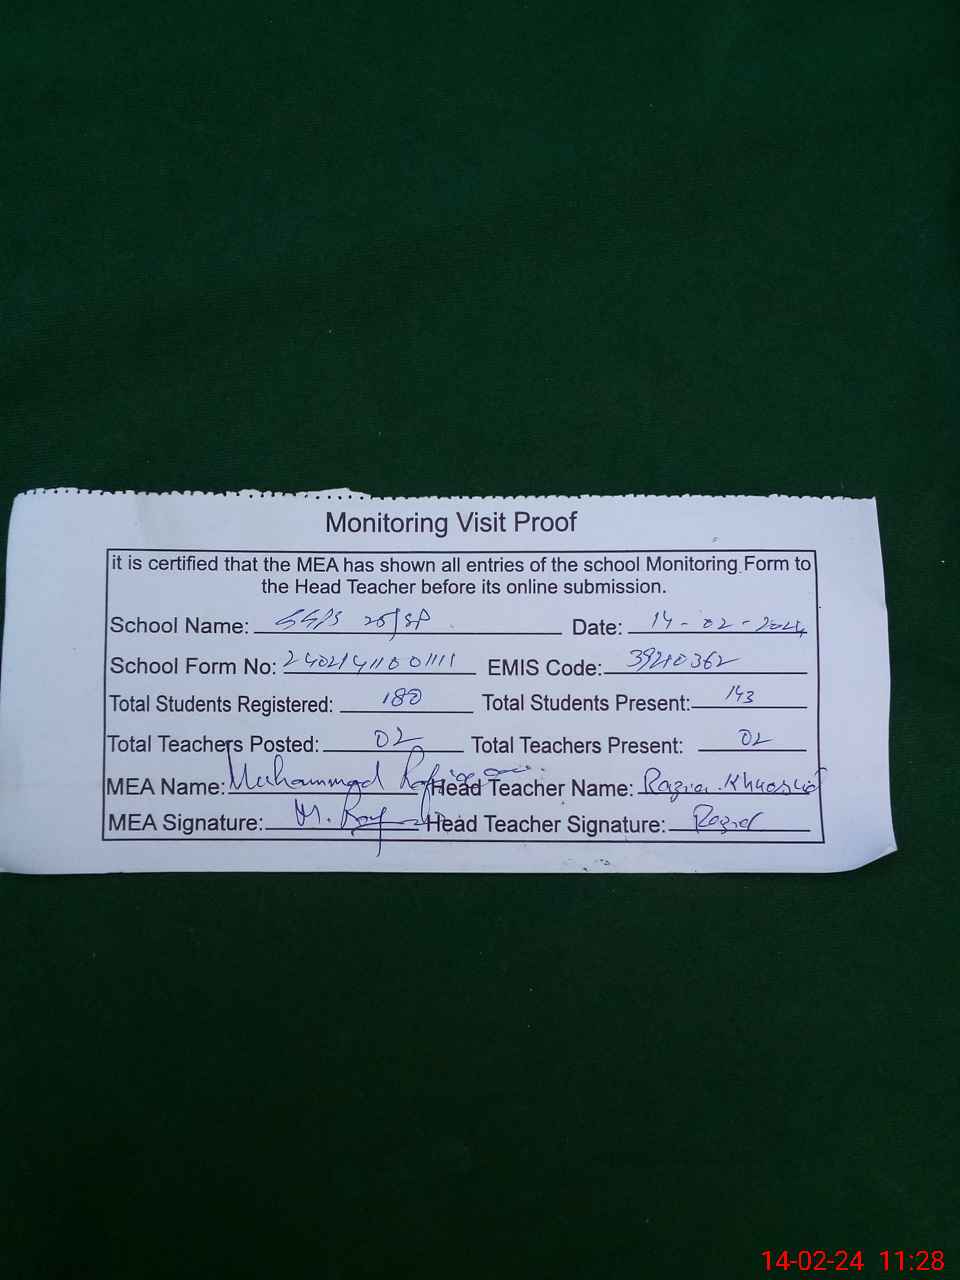 Monitoring Visit Proof
it is certified that the MEA has shown all entries of the school Monitoring Form to
the Head Teacher before its online submission.
School Name: GGPS 25/SP Date: 14-02-2024
School Form No: EMIS Code: 39210362
Total Students Registered: 180 Total Students Present: 143
Total Teachers Posted: 02 Total Teachers Present: 02
MEA Name: Muhammad Head Teacher Name: Razia
MEA Signature: M. Head Teacher Signature: Razia
14-02-24 11:28